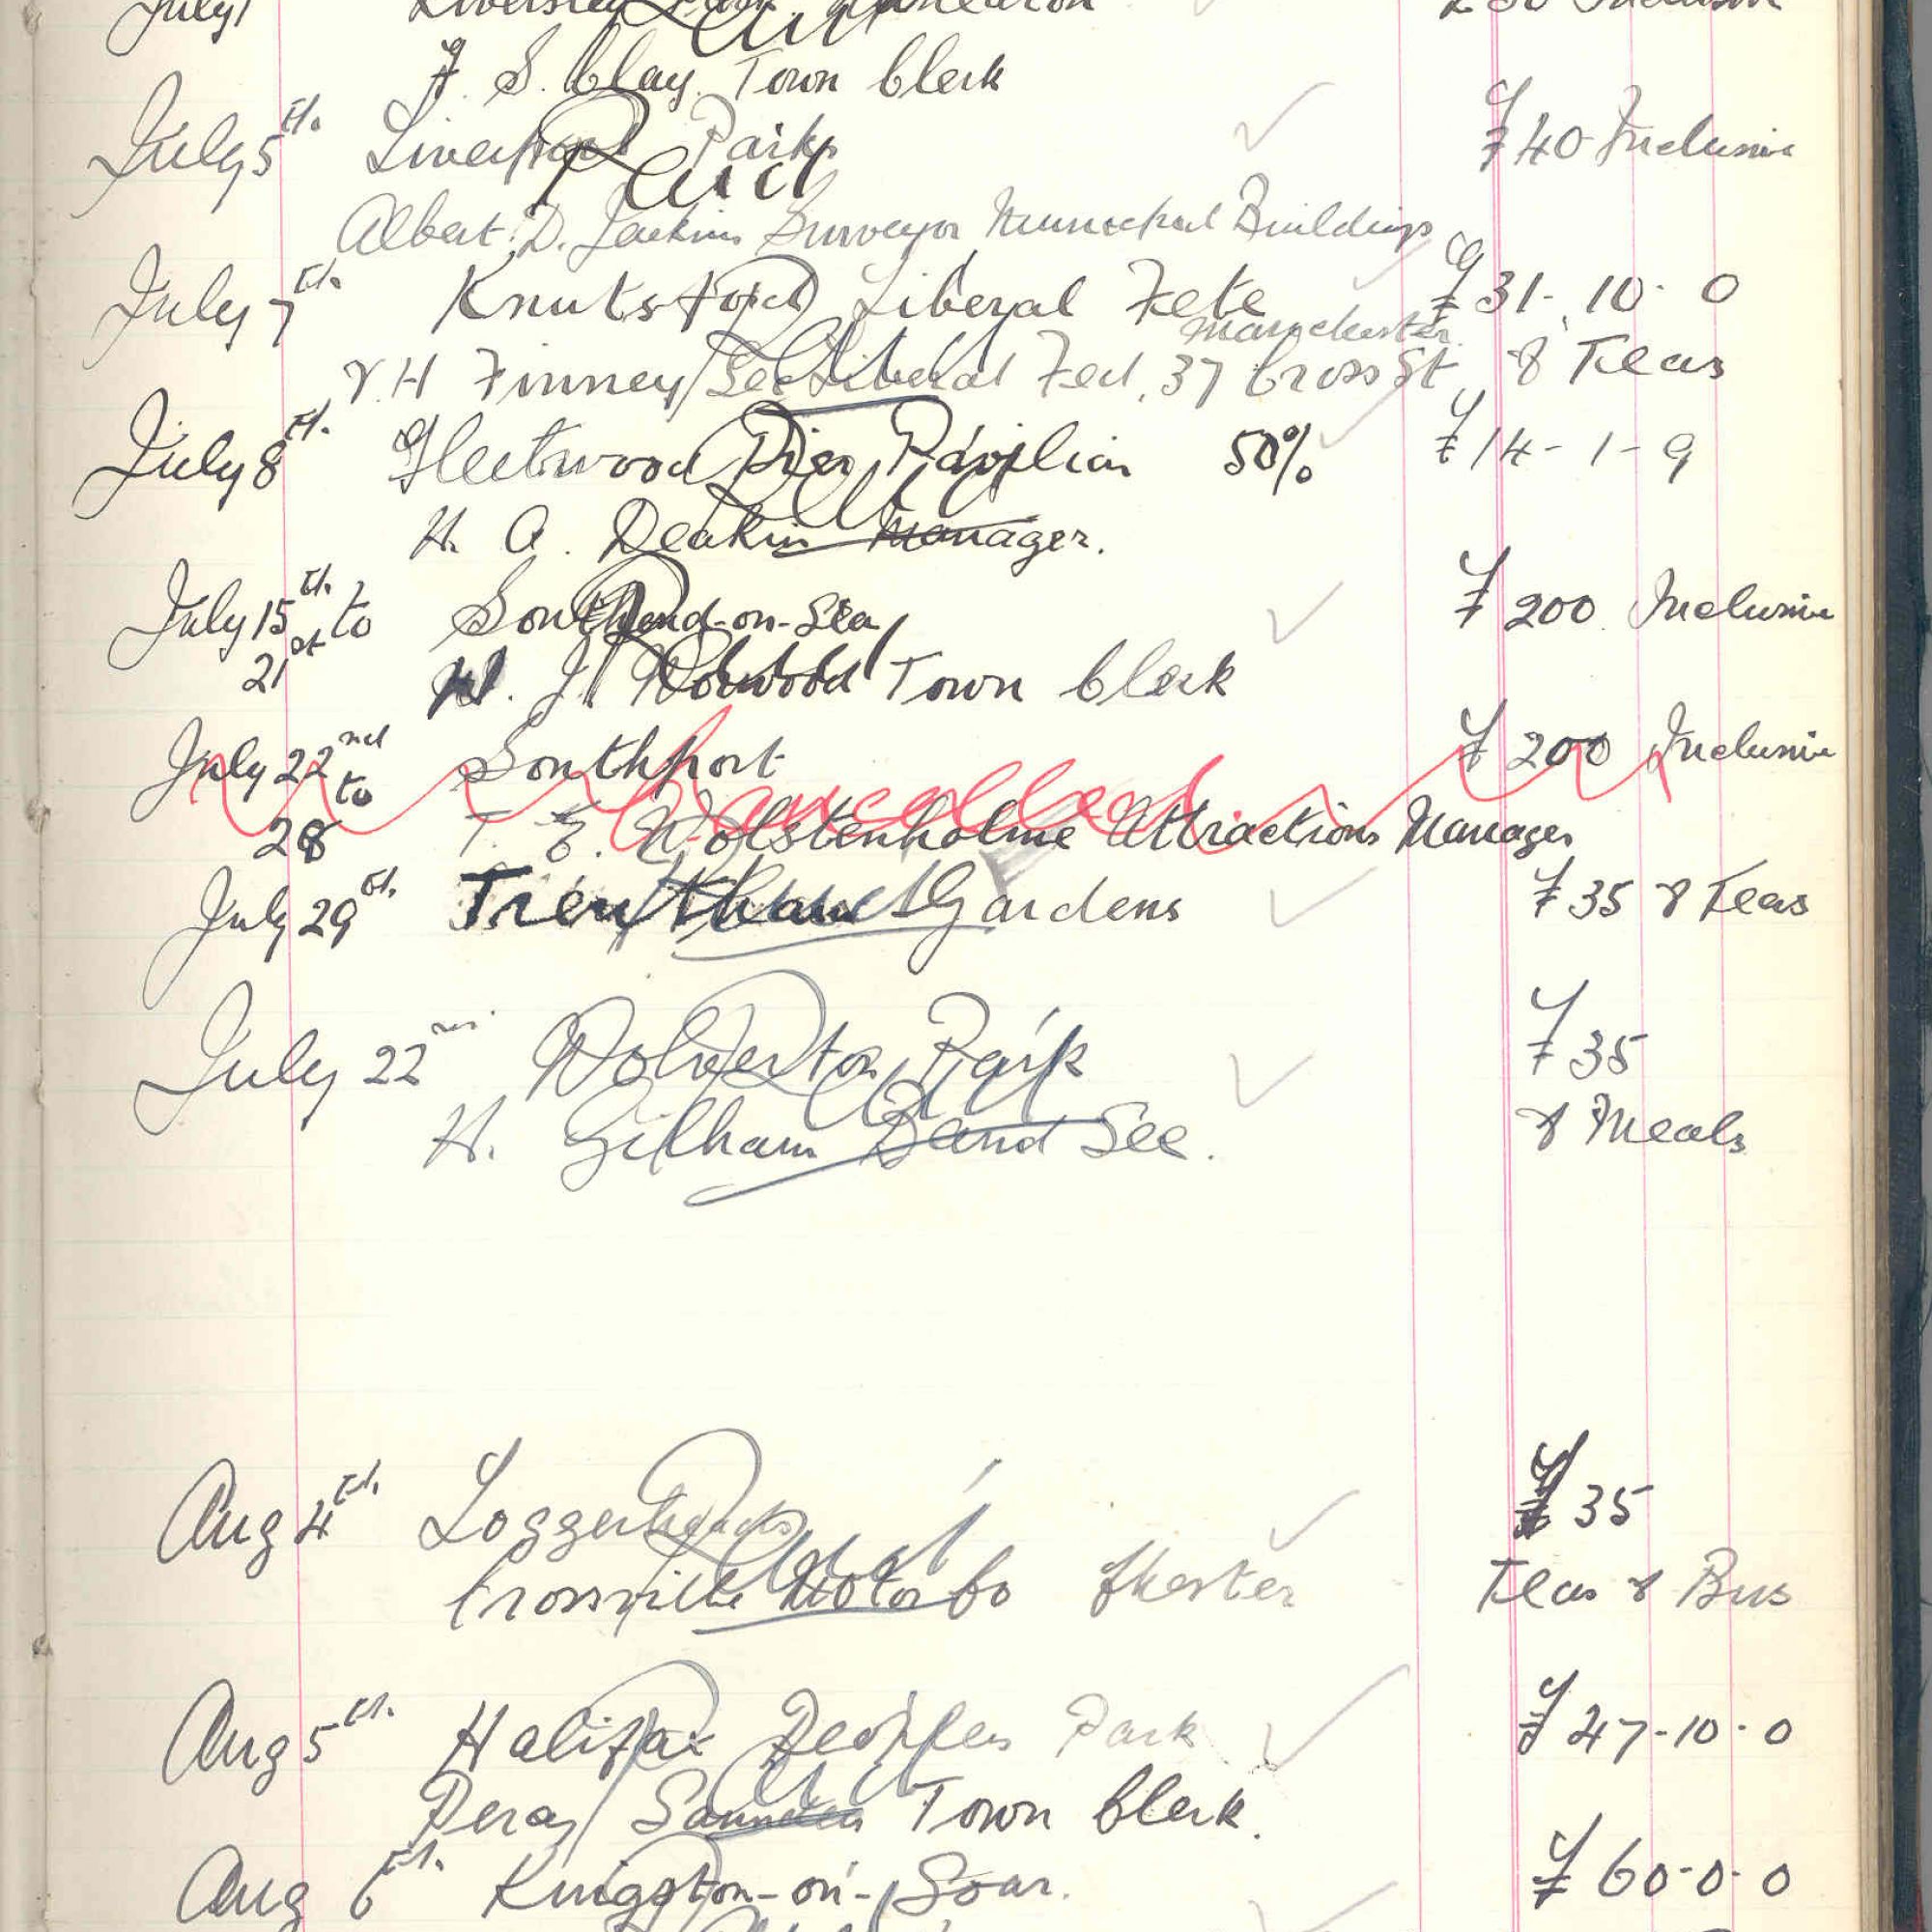 July 1
F. S. Clay. Town Clerk
July 5th. Liverpool Parks £40 Inclusive
Paid
Albert. D. Jenkins Surveyor Municipal Buildings
July 7th. Knutsford Liberal Fete £31-10-0
Manchester.
V. H Finney Sec Liberal Fed, 37 Cross St & Teas
Paid
July 8th. Fleetwood Pier Pavilion 50% £14-1-9
Paid
H. A. Deakin Manager.
July 15th. to Southend-on-Sea £200 Inclusive
Paid
21st H. J. Town Clerk
July 22nd Southport £200 Inclusive
to Cancelled
28 T. E. Wolstenholme Attractions Manager
July 29th. Trentham Gardens £35 & Teas
Paid
July 22nd. Wolverton Park £35
Paid
H. Gilham Band Sec. & Meals
Aug 4th. Loggerheads £35
Paid
Crossville Motor Co Chester Teas & Bus
Aug 5th. Halifax Peoples Park £47-10-0
Paid
Percy Saunders Town Clerk.
Aug 6th. Kingston-on-Soar. £60-0-0